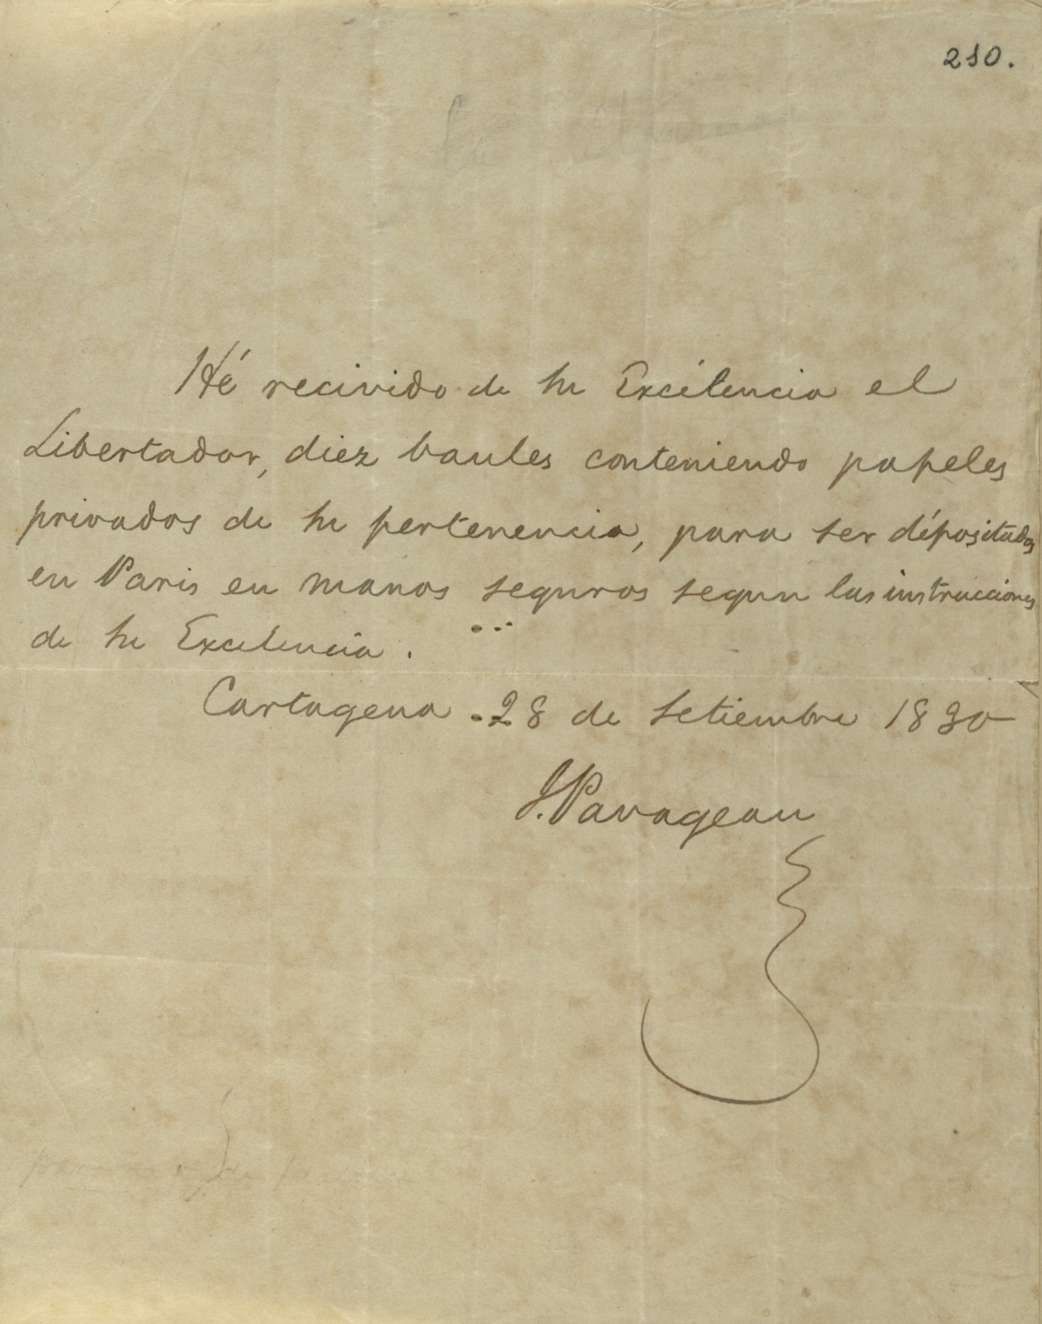 210.
Hé recivido de su Excélencia el
Libertador, diez baules conteniendo papeles
privados de su pertenencia, para ser dépositados
en Paris en manos seguros segun las instrucciones
de su Excelencia.
Cartagena 28 de Setiembre 1830
J. Pavageau